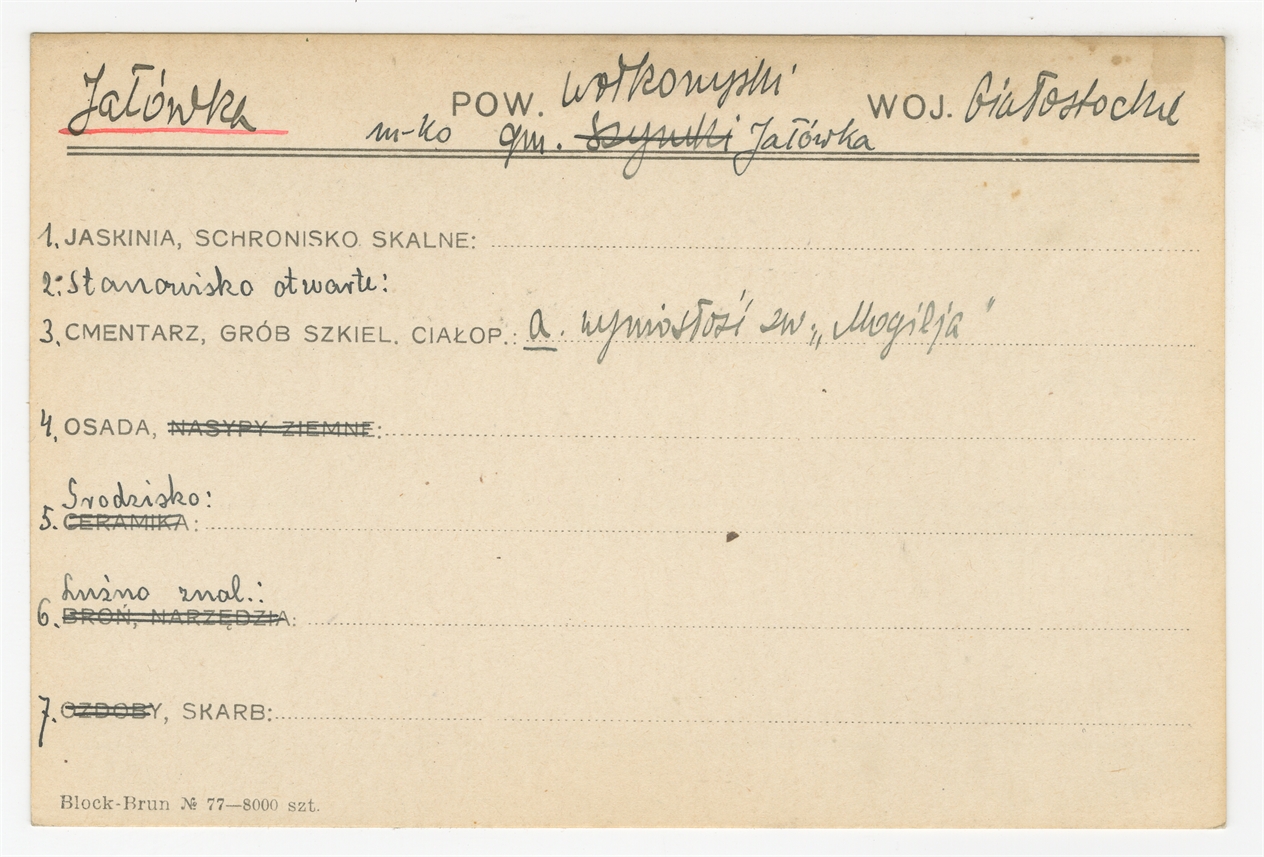 Jałówka POW. wołkowyski WOJ. białostockie
m-ko gm. Szymki Jałówka
1. JASKINIA, SCHRONISKO SKALNE:
2. Stanowisko otwarte:
3. CMENTARZ, GRÓB SZKIEL. CIAŁOP.: a. wyniosłość zw. „Mogilja"
4. OSADA, NASYPY ZIEMNE:
Grodzisko:
5. CERAMIKA:
Luźno znal.:
6. BROŃ, NARZĘDZIA:
7. OZDOBY, SKARB:
Block-Brun № 77—8000 szt.